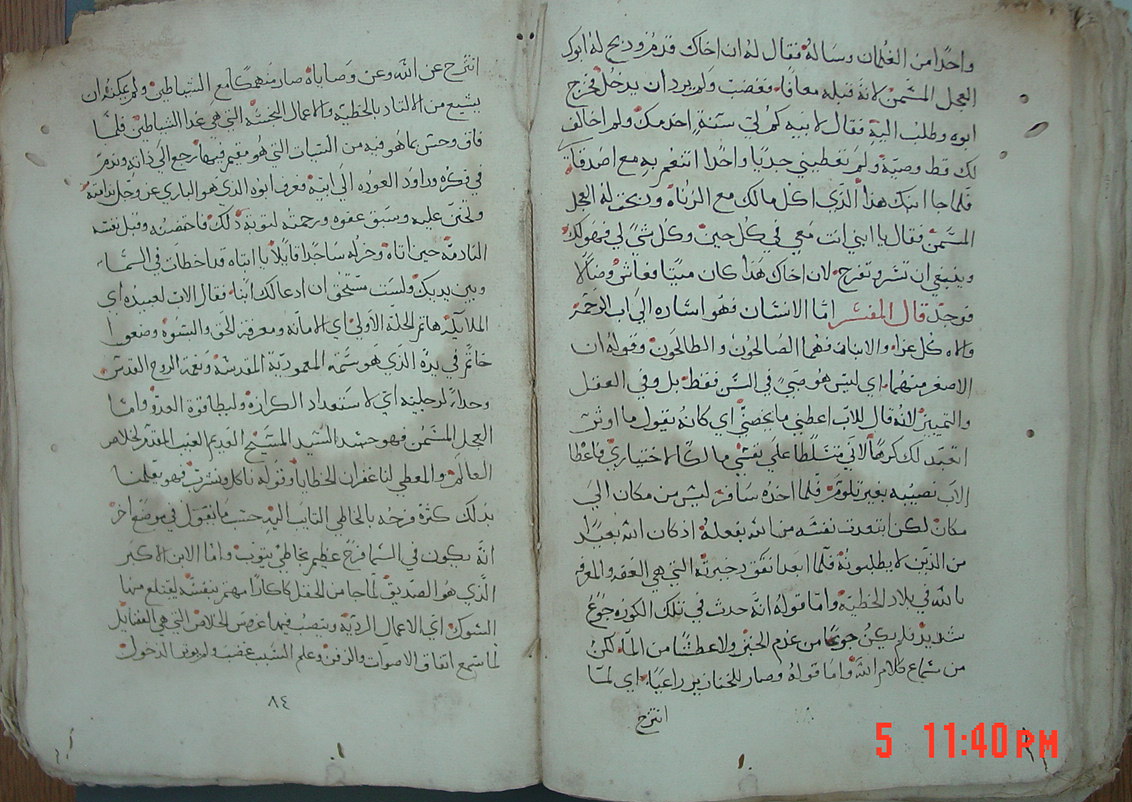 واحدًا من الغلمان وساله فقال له ان اخاك قدم وذبح له ابوك
العجل المسمن لانه قبله معافًا فغضب ولم يرد ان يدخل فخرج
ابوه وطلب اليه فقال لابيه كم لي سنة اخدمك ولم اخالف
لك قط وصية ولم تعطيني جديًا واحدًا اتنعم به مع اصدقاي
فلما جا ابنك هذا الذي اكل مالك مع الزناة ذبحت له العجل
المسمن فقال يا ابني انت معي في كل حين وكل شي لي فهو لك
وينبغي ان تسر وتفرح لان اخاك هذا كان ميتًا فعاش وضالًا
فوجد قال المفسر امّا الانسان فهو اشاره الي اب الرحمة
والاه كل عزا والابنان فهما الصالحون والطالحون وقوله ان
الاصغر منهما اي ليس هو صبي في السن فقط بل وفي العقل
والتمييز لانه قال للاب اعطيني ما يخصني اي كانه يقول ما اوثر
اتعبد لك كرهًا لاني متسلطًا علي نفسي مالكًا لاختياري فاعطا
الاب نصيبه بغير تلوم فلما اخده سافر ليس من مكان الي
مكان لكن ابتعدت نفسه من الله بفعله اذ كان الله بعيد
من الذين لا يطلبونه فلما ابعد انفق دخيرته التي هي العقد والمعرفه
بالله في بلاد الخطية وامّا قوله انه حدث في تلك الكوره جوع
شديد فلم يكن جوعًا من عدم الخبز ولا عطشًا من الما لكن
من سماع كلام الله وامّا قوله وصار للخنازير راعيًا اي لمّا
انتزح
انتزح عن الله وعن وصاياه صار منهمكًا مع الشياطين ولم يمكنه ان
يشبع من الالتداد بالخطية والاعمال النجسه التي هي غدا الشياطين فلمّا
فاق وحس بما هو فيه من السيات التي هو مقيم فيها رجع الي ذاته وندم
في فكره وراود العوده الي ابيه وعرف ابوه الذي هو الباري عز وجل ندامته
وتحنن عليه وسبق عفوه ورحمته لتوبة ذلك فاحتضنه وقبل نفسه
النادمة حين اتاه وخر له ساجدًا قايلًا يا ابتاه قد اخطات في السما
وبين يديك ولست مستحق ان ادعا لك ابنا فقال الاب لعبيده اي
الملايكه هاتم الحلة الاولي اي الامانه ومعرفة الحق والبنوه وضعوا
خاتم في يده الذي هو سمة المعمودية المقدسة ونعمة الروح القدس
وحداء لرجليه اي لاستعداد الكرازه وليطا قوة العدو وامّا
العجل المسمن فهو جسد السيد المسيح القديم العيب المقدم لخلاص
العالم والمعطي لنا غفران الخطايا وقوله ناكل ونشرب فهو يعلمنا
بدلك كثرة فرحه بالخاطي التايب اليه حسب ما يقول في موضع اخر
انّه يكون في السما فرح عظيم بخاطي يتوب وامّا الابن الاكبر
الّذي هو الصدّيق لمّا جا من الحقل كاكارًا مهتم بنفسه ليقتلع منها
الشوك اي الاعمال الرديّه وينصب فيها غرس الخلاص التي هي الفضايل
لما سمع اتفاق الاصوات والزفن وعلم السبب غضب ولم يوثر الدخول
٨٤
5 11:40 PM